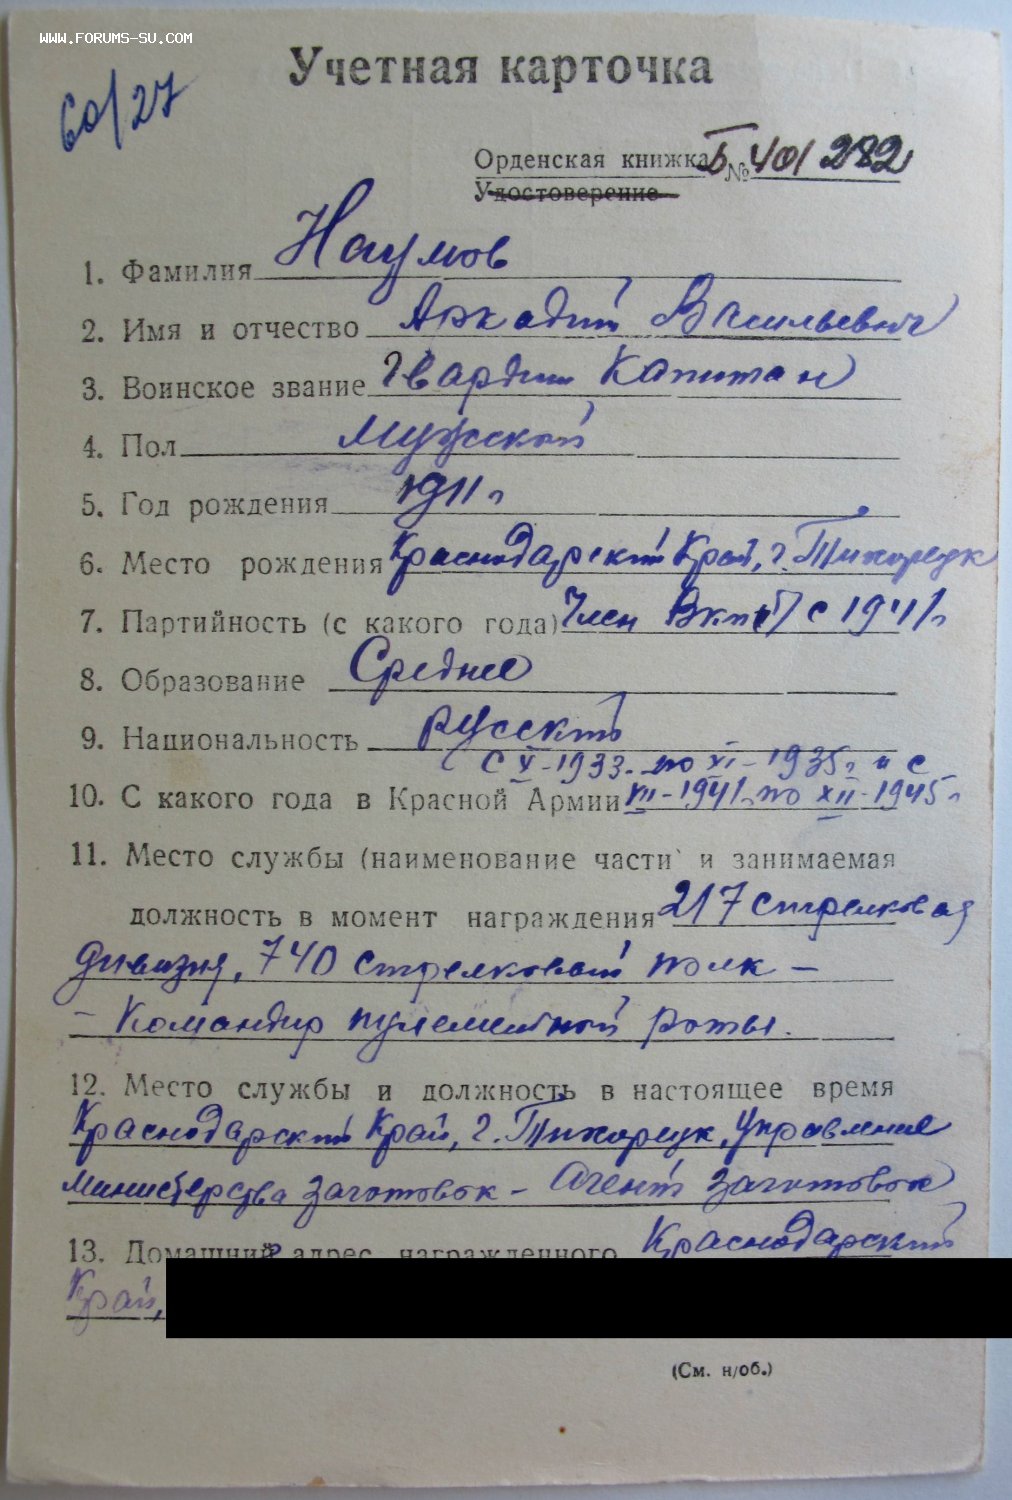 WWW.FORUMS-SU.COM
60/27
Учетная карточка
Орденская книжка Б № 401282
Удостоверение
1. Фамилия Наумов
2. Имя и отчество Аркадий Васильевич
3. Воинское звание Гвардии Капитан
4. Пол Мужской
5. Год рождения 1911 г
6. Место рождения Краснодарский Край, г. Тихорецк
7. Партийность (с какого года) Член ВКП(б) с 1941 г
8. Образование Среднее
9. Национальность русский
С X-1933. по XI-1935 г и с
10. С какого года в Красной Армии VII-1941 г. по XII-1945 г
11. Место службы (наименование части и занимаемая
должность в момент награждения 217 стрелковая
дивизия, 740 стрелковый полк –
– Командир пулеметной роты.
12. Место службы и должность в настоящее время
Краснодарский Край, г. Тихорецк, Управление
Министерства Заготовок – Агент Заготовок
13. Домашний адрес награжденного Краснодарский
Край,
(См. н/об.)